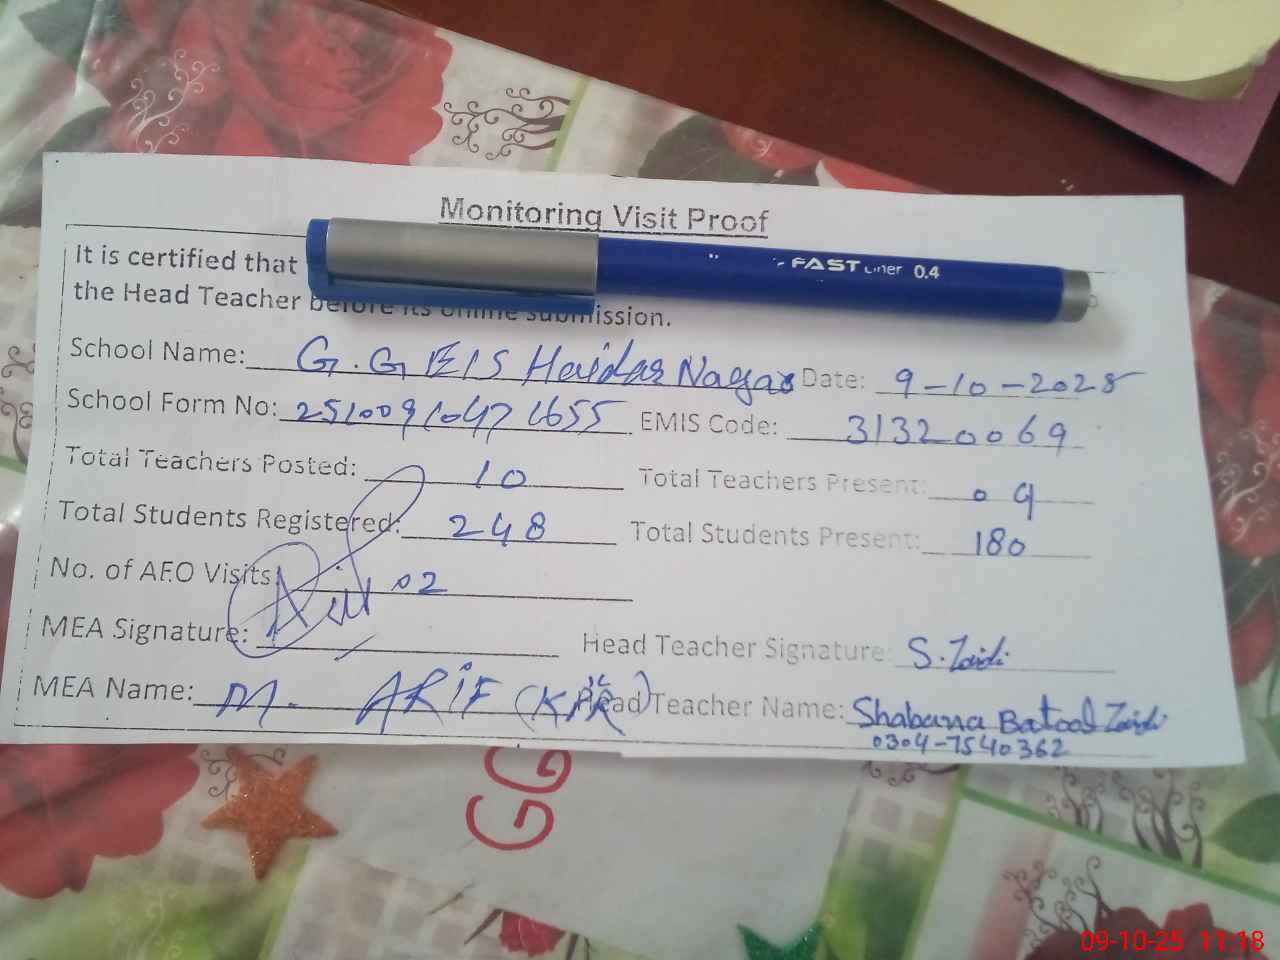 Monitoring Visit Proof
It is certified that
the Head Teacher before its online submission.
FAST Liner 0.4
School Name: G.GEIS Haidar Nagar Date: 9-10-2025
School Form No: 2510091047 1655 EMIS Code: 31320069
Total Teachers Posted: 10 Total Teachers Present: 09
Total Students Registered: 248 Total Students Present: 180
No. of AEO Visits: 02
MEA Signature: Head Teacher Signature: S.Zaidi
MEA Name: M. ARIF Head Teacher Name: Shabana Batool Zaidi
0304-7540362
GG
09-10-25 11:18